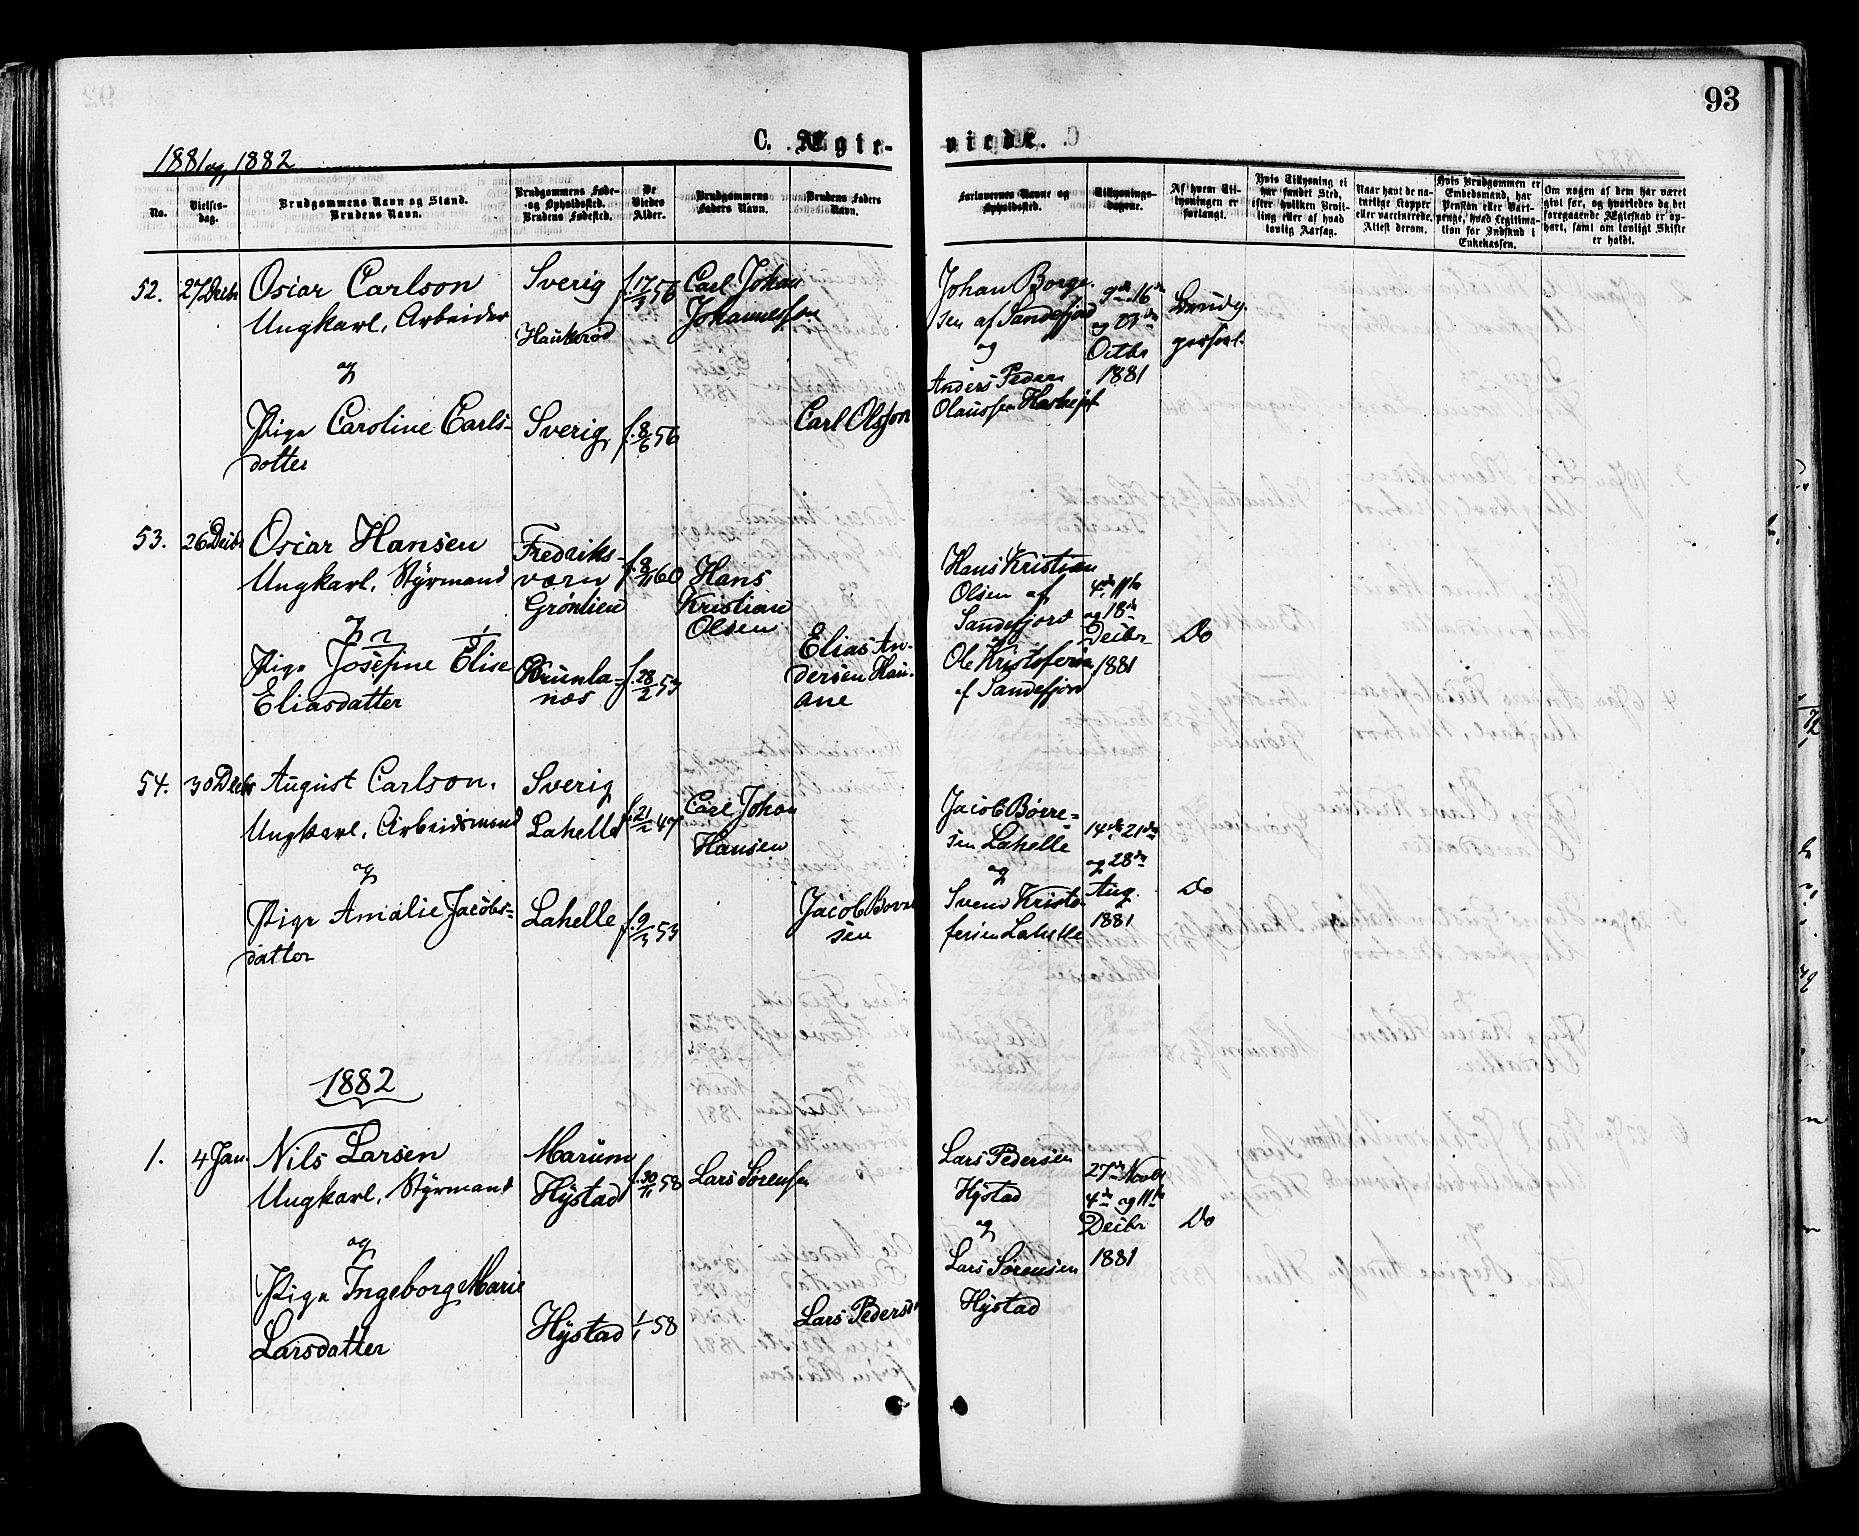 93
C. Ægte-
viede.
1881 og 1882
No.
Vielses-
dag.
Brudgommens Navn og Stand.
Brudens Navn.
Brudgommens Føde-
og Opholdssted.
Brudens Fødested.
De
Viedes
Alder.
Brudgommens
Faders Navn.
Brudens Faders
Navn.
Forlovernes Navne og
Opholdssted.
Tillysnings-
dagene.
Af hvem Til-
lysningen er
forlangt.
Hvis Tillysning ei
har fundet Sted,
efter hvilken Bevil-
ling eller af hvad
lovlig Aarsag.
Naar havt de na-
turlige Kopper
eller vaccinerede.
Attest derom.
Hvis Brudgommen er
Embedsmand, har
Pension eller Vart-
penge, hvad Legitima-
tion for Indskud i
Enkekassen.
Om nogen af dem har været
gift før, og hvorledes da det
foregaaende Ægteskab er op-
hørt, samt om lovligt Skifte
er holdt.
52.
27 Decbr
Oscar Carlson
Ungkarl, Arbeider
og
Pige Caroline Carls-
datter
Sverig
Haukerød
Sverig
f. 17/9 56
f. 8/6 56
Carl Johan
Johannesson
Carl Olsson
Johan Borge-
sen af Sandefjord
og
Anders Peder
Olaussen
9de 16de
og 23de
Octbr
1881
Brudg.
personl.
53.
26 Decbr
Oscar Hansen
Ungkarl, Styrmand
og
Pige Josefine Elise
Eliasdatter
Fredriks-
værn
Grønlien
Brunla-
næs
f. 8/11 60
f. 28/2 53
Hans
Kristian
Olsen
Elias An-
dersen Hau-
ane
Hans Kristian
Olsen af
Sandefjord
og
Ole Kristofersen
af Sandefjord
4de 11te
og 18de
Decbr
1881
Do
54.
30 Decbr
August Carlson.
Ungkarl, Arbeidsmand
og
Pige Amalie Jacobs-
datter
Sverig
Lahelle
Lahelle
f. 21/2 47
f. 9/3 53
Carl Johan
Hansen
Jacob Borre
sen
Jacob Børre-
sen Lahelle
og
Svend Kristo-
fersen Lahelle
14de 21de
og 28de
Aug.
1881
Do
1882
1.
4 Jan.
Nils Larsen
Ungkarl, Styrmand
og
Pige Ingeborg Marie
Larsdatter
Marum
Hystad
Hystad
f. 30/11 58
1/1 58
Lars Sørensen
Lars Pedersen
Lars Pedersen
Hystad
og
Lars Sørensen
Hystad
27de Novbr
4de og 11te
Decbr
1881
Do